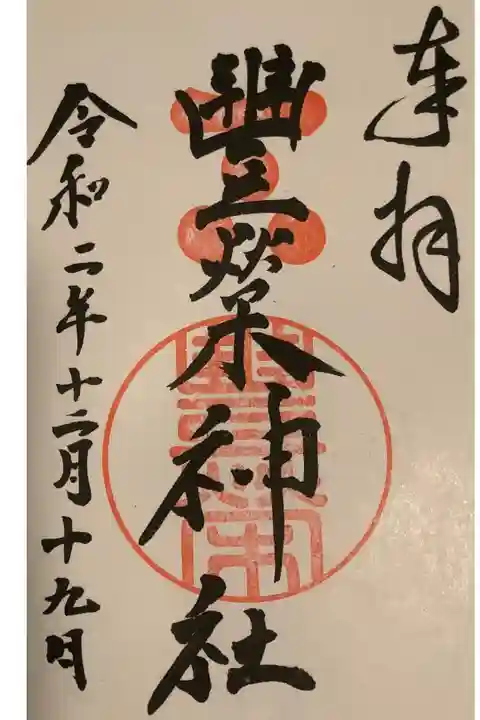 奉拝
豐榮神社
令和二年十二月十九日